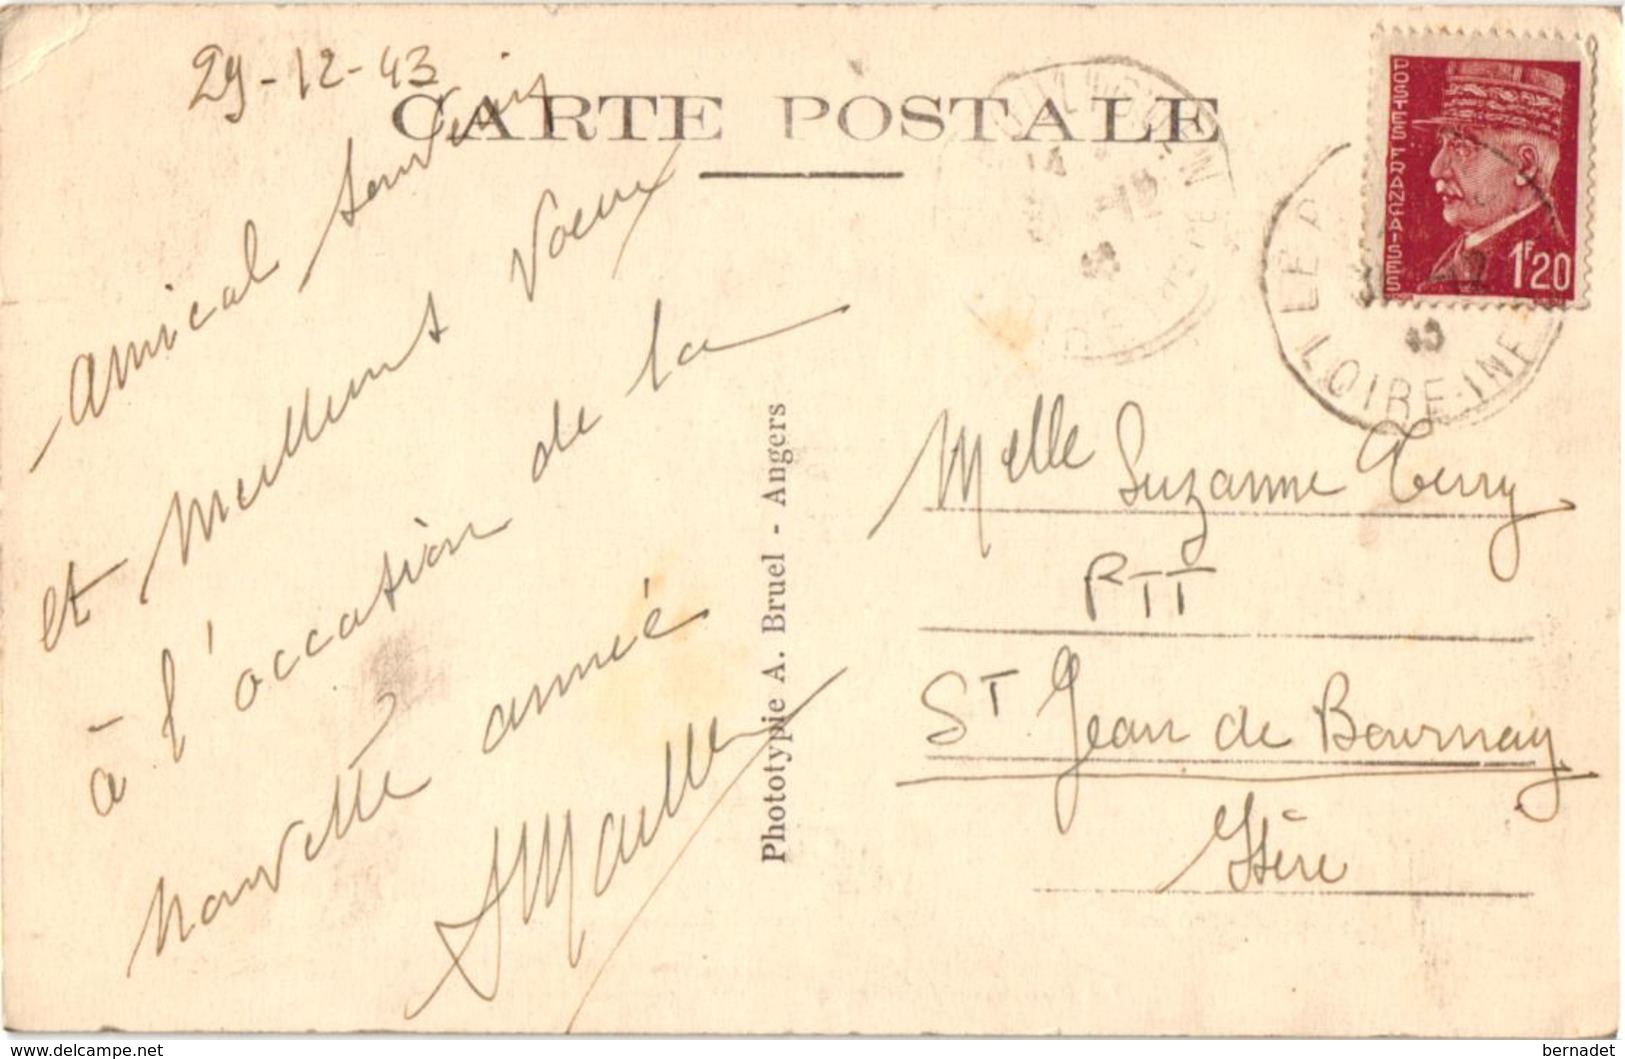 29-12-43
CARTE POSTALE
Amical souvenir
et meilleurs voeux
à l'occasion de la
nouvelle année
Phototypie A. Bruel - Angers
POSTES FRANÇAISES
1F20
12
43
LOIRE-INF
Melle Suzanne Terry
PTT
ST Jean de Bournay
Isère
https://www.delcampe.net
bernadet